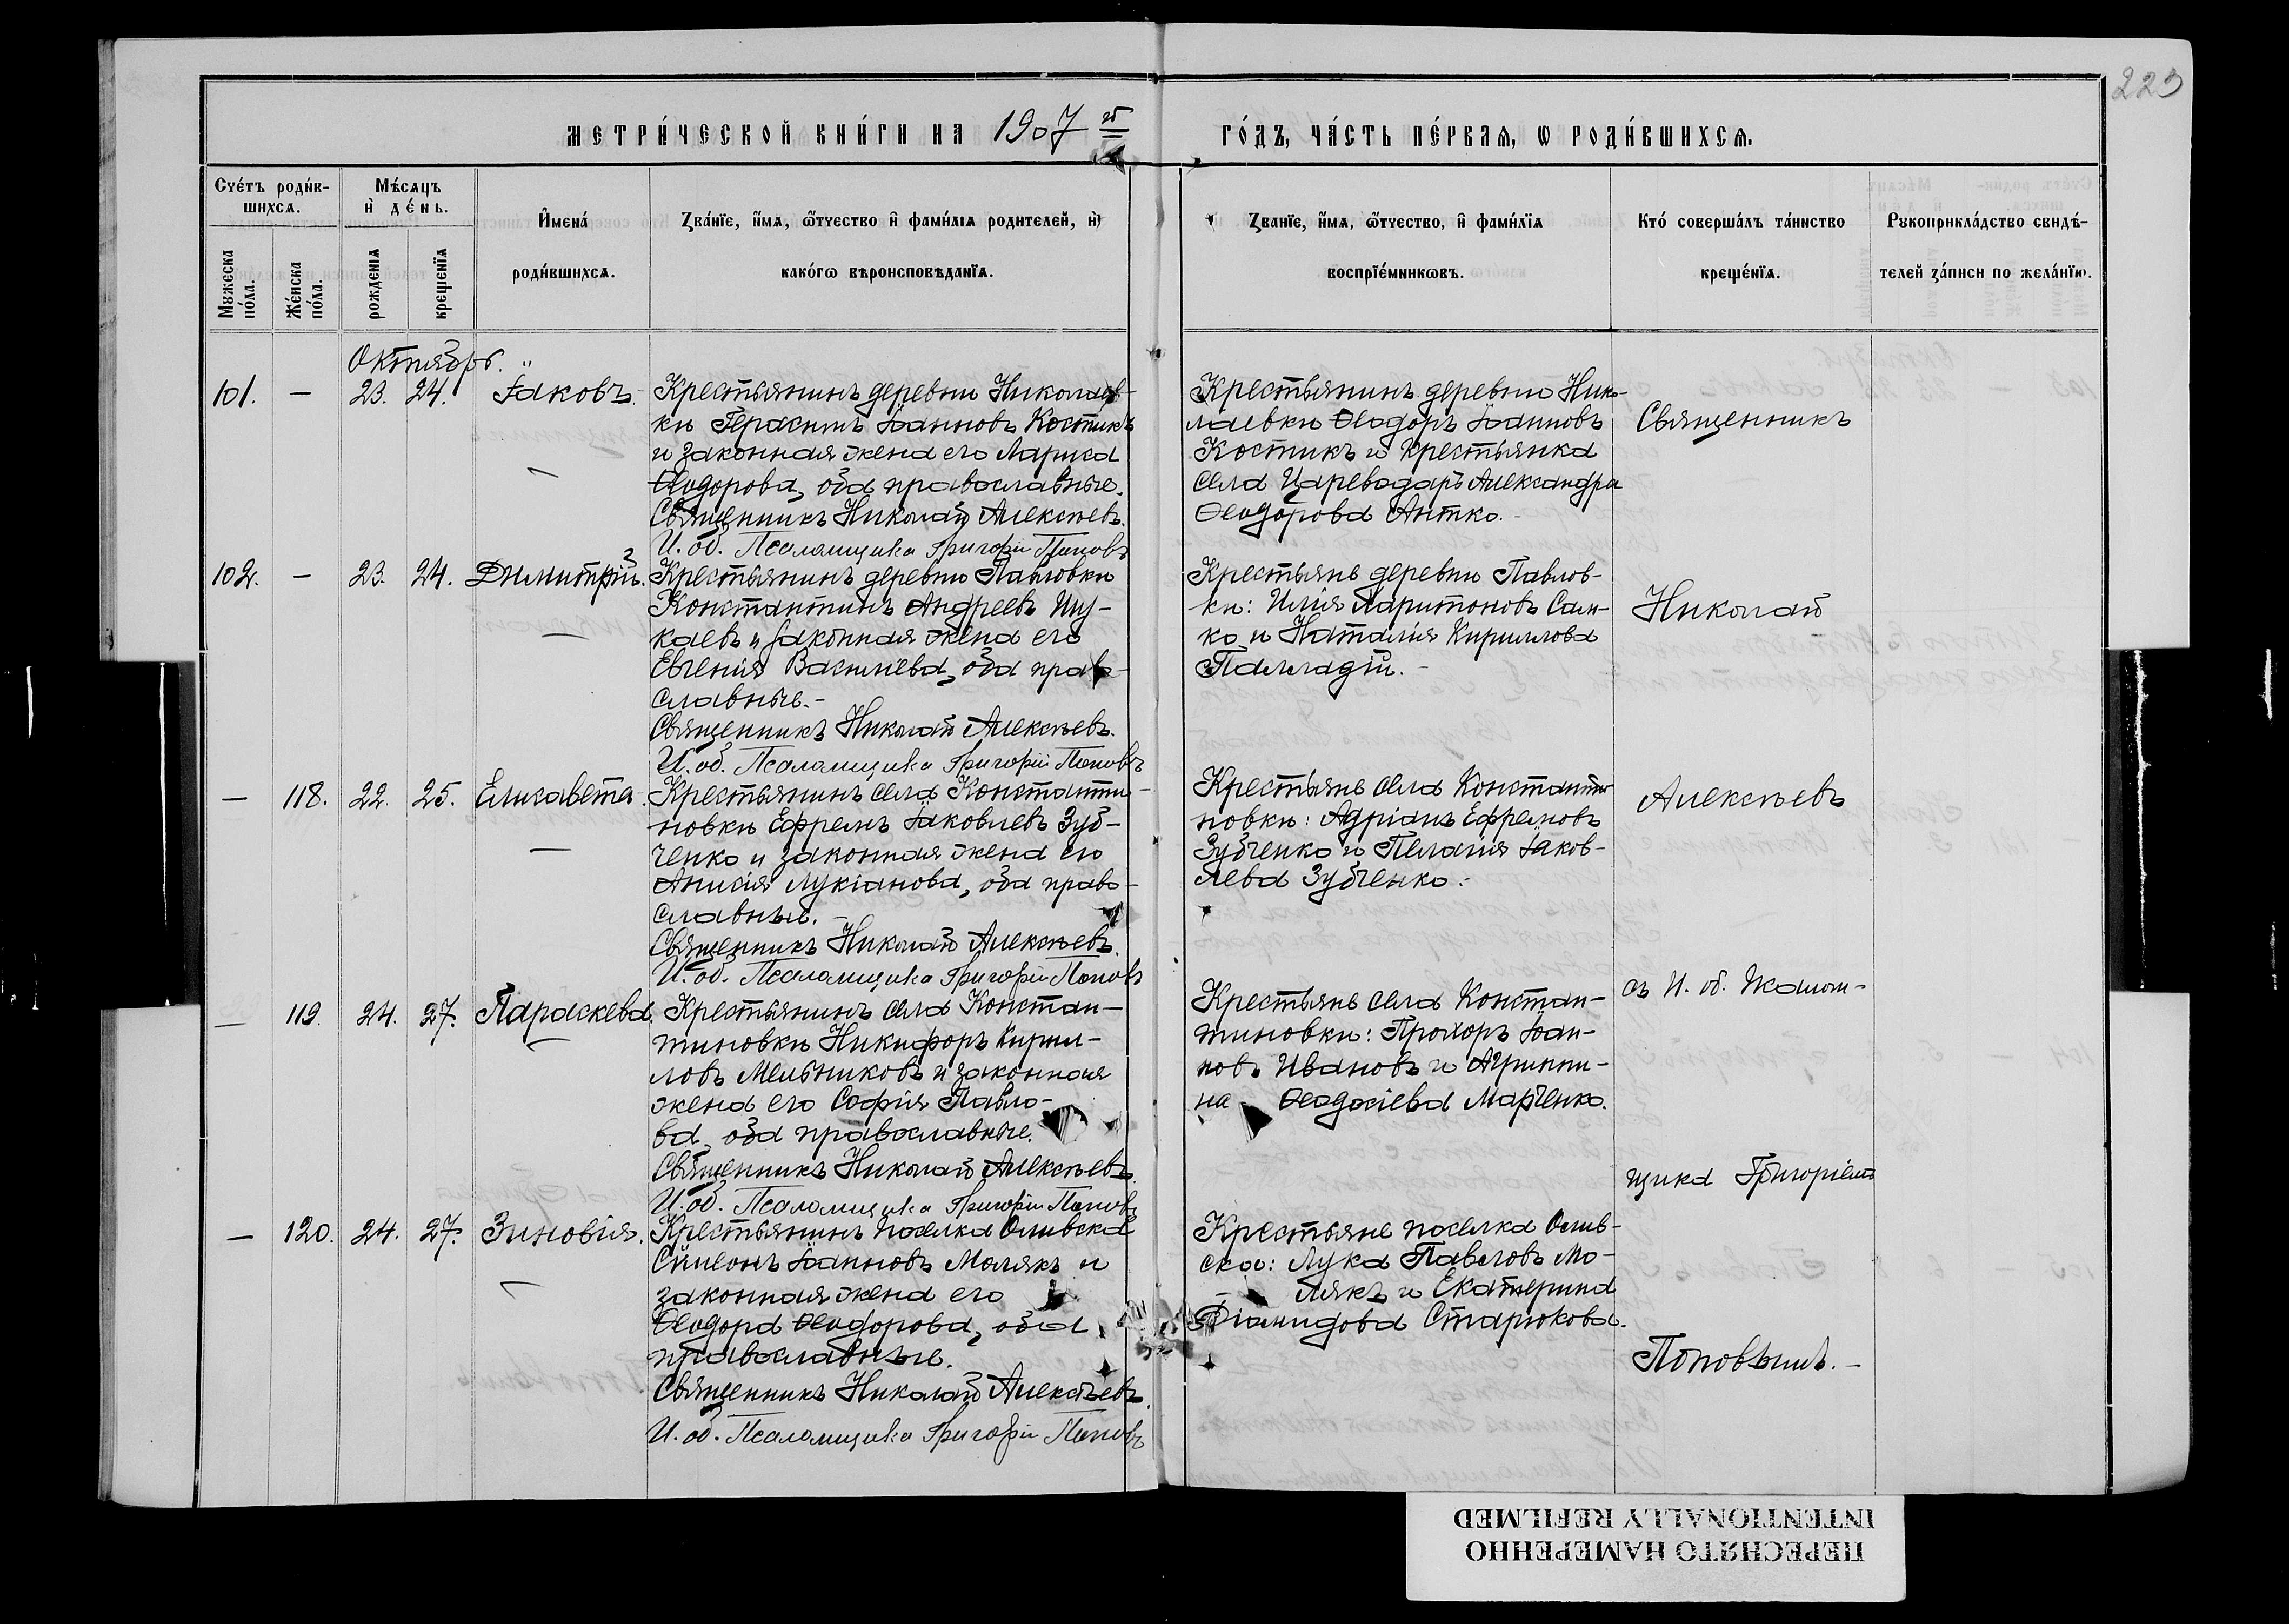 223
МЕТРИ́ЧЕСКОЙ КНИ́ГИ НА 1907 й
ГО́ДЪ, ЧА́СТЬ ПЕ́РВАЯ, Ѡ РОДИ́ВШИХСЯ.
Сче́тъ роди́в-
шихся.
Му́жеска по́ла.
Же́нска по́ла.
Мѣ́сяцъ
и҆ де́нь.
рожденія
крещенїя
И҆мена́
роди́вшихся.
Зва́нїе, и҆́мя, ѻ҆́тчество и҆ фамѝлїа родителей, и҆
како́гѡ вѣроисповѣданїя.
Зва́нїе, и҆́мя, ѻ҆́тчество, и҆ фамѝлїя
воспрїе́мникѡвъ.
Кто́ соверша́лъ та́инство
креще́нїя.
Рукоприкла́дство свидѣ́-
телей за́писи по жела́нїю.
Октябрь.
101. — 23. 24. Іаковъ.
Крестьянинъ деревни Николаев-
ки Герасимъ Іоанновъ Костикъ
и законная жена его Лариса
Ѳеодорова, оба православные.
Священникъ Николай Алексѣевъ.
И. об. Псаломщика Григорій Поповъ
Крестьянинъ деревни Нико-
лаевки Ѳеодоръ Іоанновъ
Костикъ и крестьянка
села Цареводаръ Александра
Ѳеодорова Антко.-
Священникъ
102. — 23. 24. Димитрій.
Крестьянинъ деревни Павловки
Константинъ Андреевъ Шу-
каевъ и законная жена его
Евгенія Васильева, оба право-
славные.-
Священникъ Николай Алексѣевъ.
И. об. Псаломщика Григорій Поповъ
Крестьяне деревни Павлов-
ки: Илія Харитоновъ Сам-
ко и Наталія Кириллова
Палладій.-
Николай
— 118. 22. 25. Елисавета.
Крестьянинъ села Константи-
новки Ефремъ Іаковлевъ Зуб-
ченко и законная жена его
Анисія Лукіанова, оба право-
славные.-
Священникъ Николай Алексѣевъ.
И. об. Псаломщика Григорій Поповъ
Крестьяне села Константи
новки: Адріанъ Ефремовъ
Зубченко и Пелагія Іаков-
лева Зубченко.-
Алексѣевъ
— 119. 24. 27. Параскева.
Крестьянинъ села Констан-
тиновки Никифоръ Кирил-
ловъ Мельниковъ и законная
жена его Софія Павло-
ва, оба православные.
Священникъ Николай Алексѣевъ.
И. об. Псаломщика Григорій Поповъ
Крестьяне села Констан-
тиновки: Прохоръ Іоан-
новъ Ивановъ и Агриппи-
на Ѳеодосіева Марченко.
съ И. об. Псалом-
щика Григоріемъ
— 120. 24. 27. Зиновія.
Крестьянинъ поселка Оливска
Сѵмеонъ Іоанновъ Молякъ и
законная жена его
Ѳеодора Ѳеодорова, оба
православные.
Священникъ Николай Алексѣевъ.
И. об. Псаломщика Григорій Поповъ
Крестьяне поселка Олив-
ско: Лука Павловъ Мо-
лякъ и Екатерина
Діамидова Старюкова.
Поповымъ.-
ПЕРЕСНЯТО НАМЕРЕННО
INTENTIONALLY REFILMED